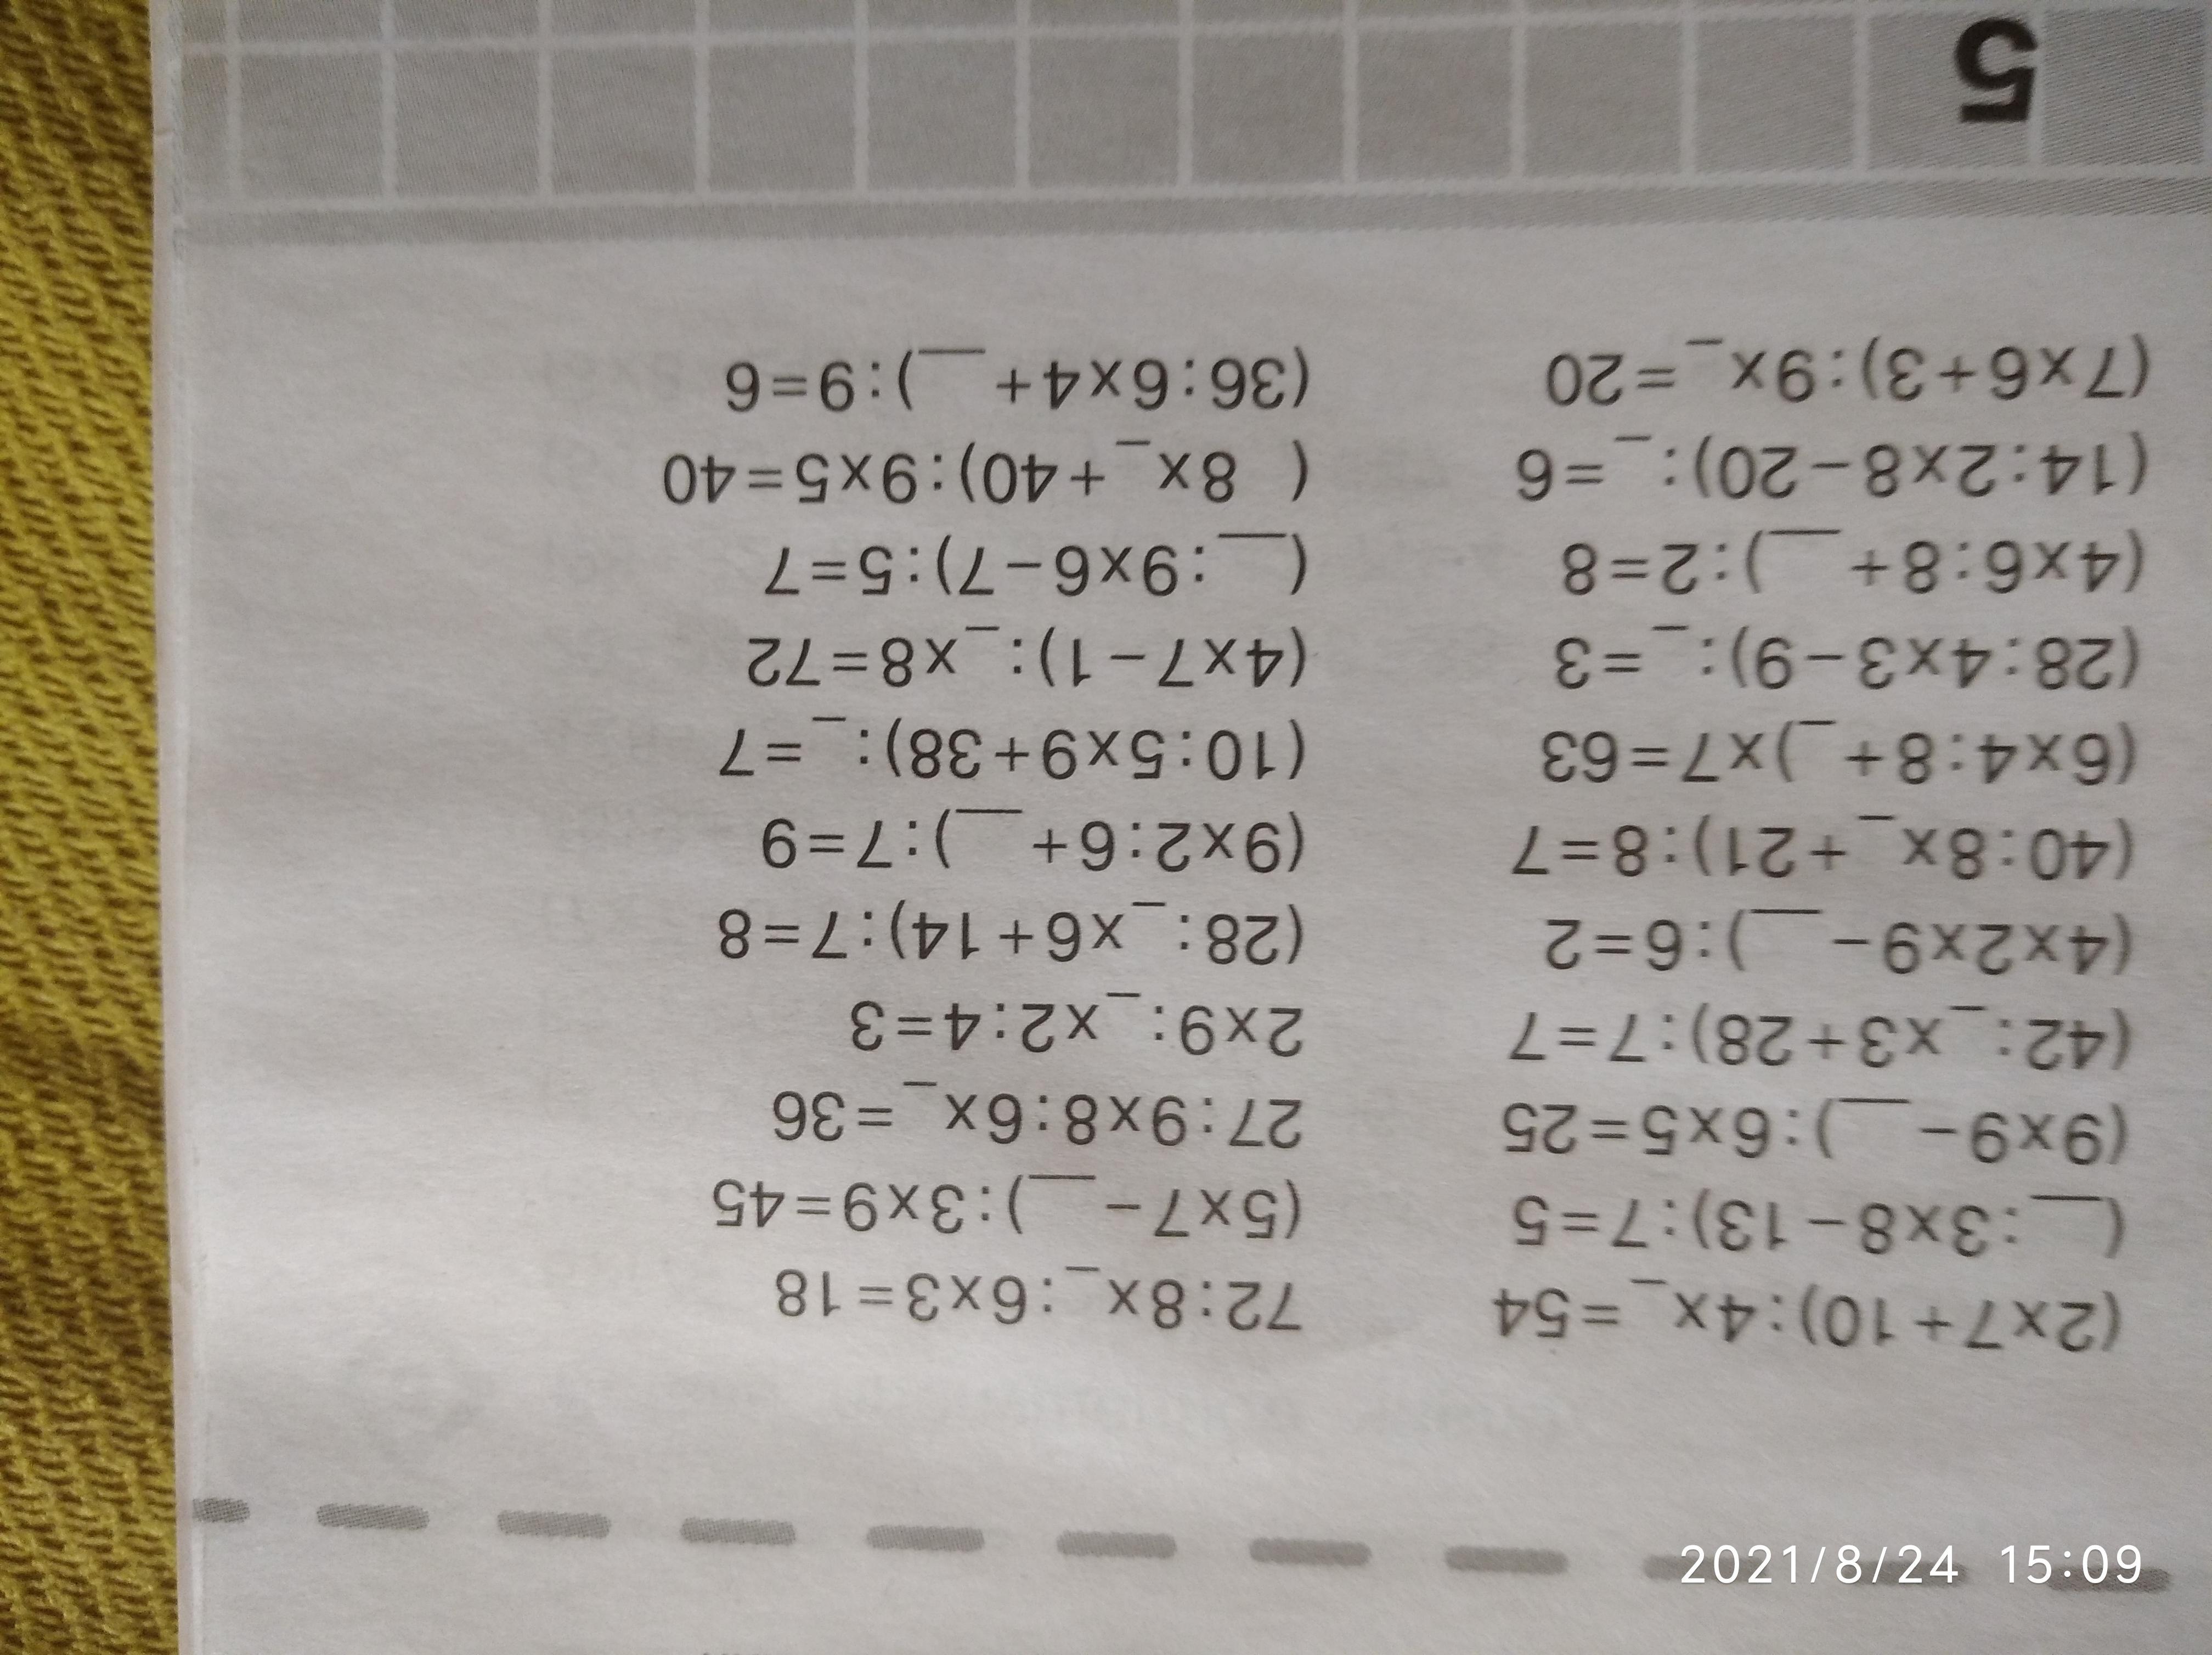 (2x7+10):4x_=54
(__:3x8-13):7=5
(9x9-__):6x5=25
(42:_x3+28):7=7
(4x2x9-__):6=2
(40:8x_+21):8=7
(6x4:8+_)x7=63
(28:4x3-9):_=3
(4x6:8+__):2=8
(14:2x8-20):_=6
(7x6+3):9x_=20
72:8x_:6x3=18
(5x7-__):3x9=45
27:9x8:6x_=36
2x9:_x2:4=3
(28:_x6+14):7=8
(9x2:6+__):7=9
(10:5x9+38):_=7
(4x7-1):_x8=72
(__:9x6-7):5=7
( 8x_+40):9x5=40
(36:6x4+__):9=6
5
2021/8/24 15:09